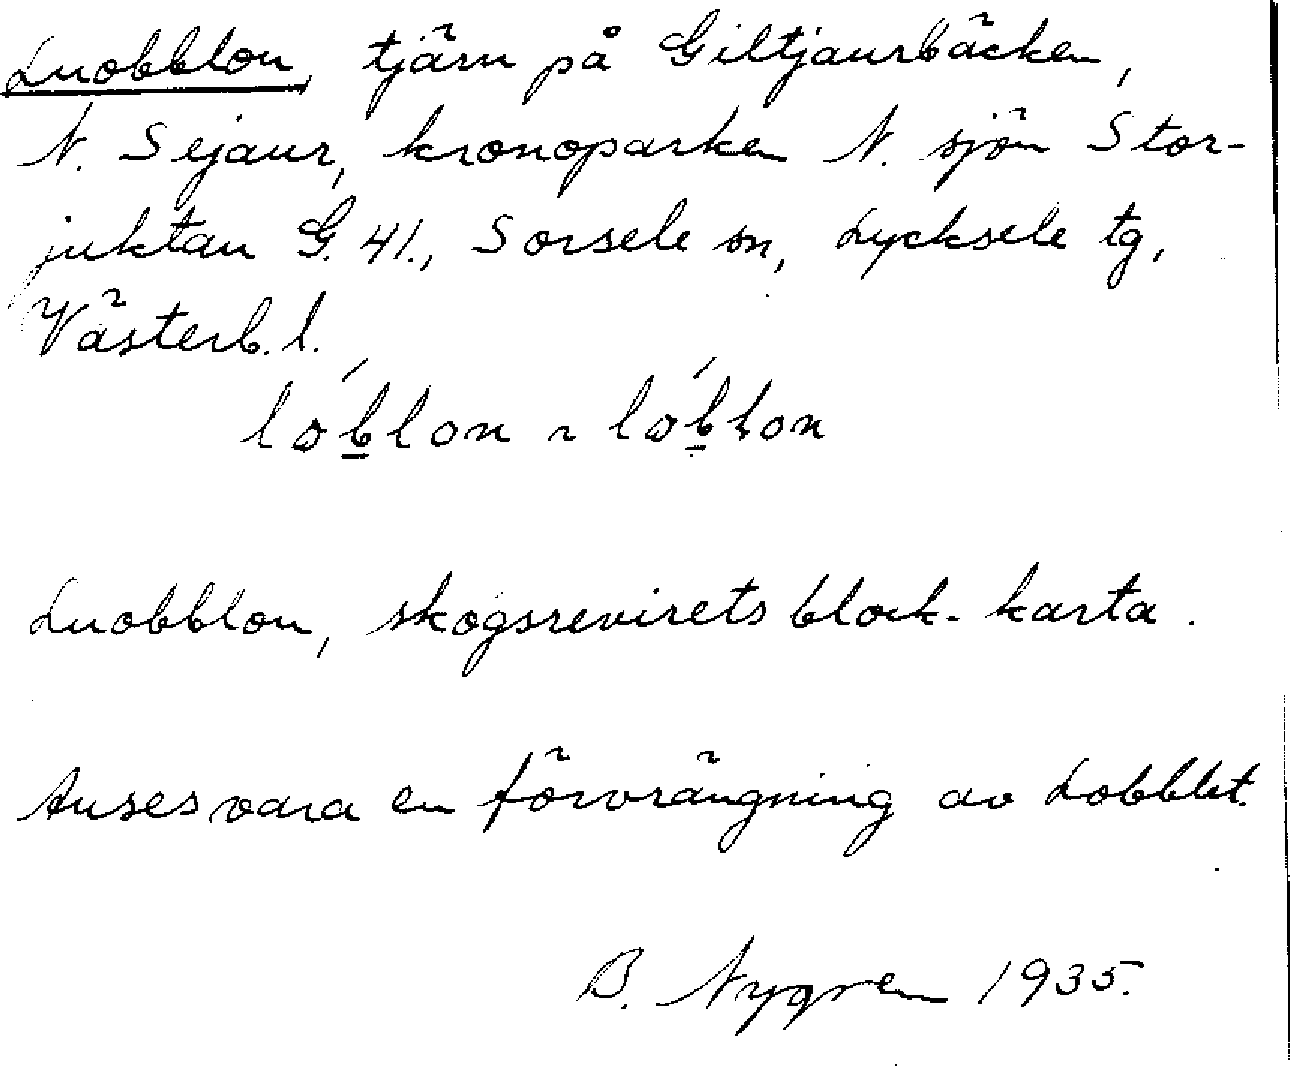 Luobblon, tjärn på Giltjaurbäcken,
N. Sejaur, kronoparken N. sjön Stor-
juktan G. 41., Sorsele sn, Lycksele tg,
Västerb. l.
lób̲lon ~ lób̲lon
Luobblon, skogsrevirets block-karta.
Anses vara en förvrängning av Lobblet.
B. Nygren 1935.